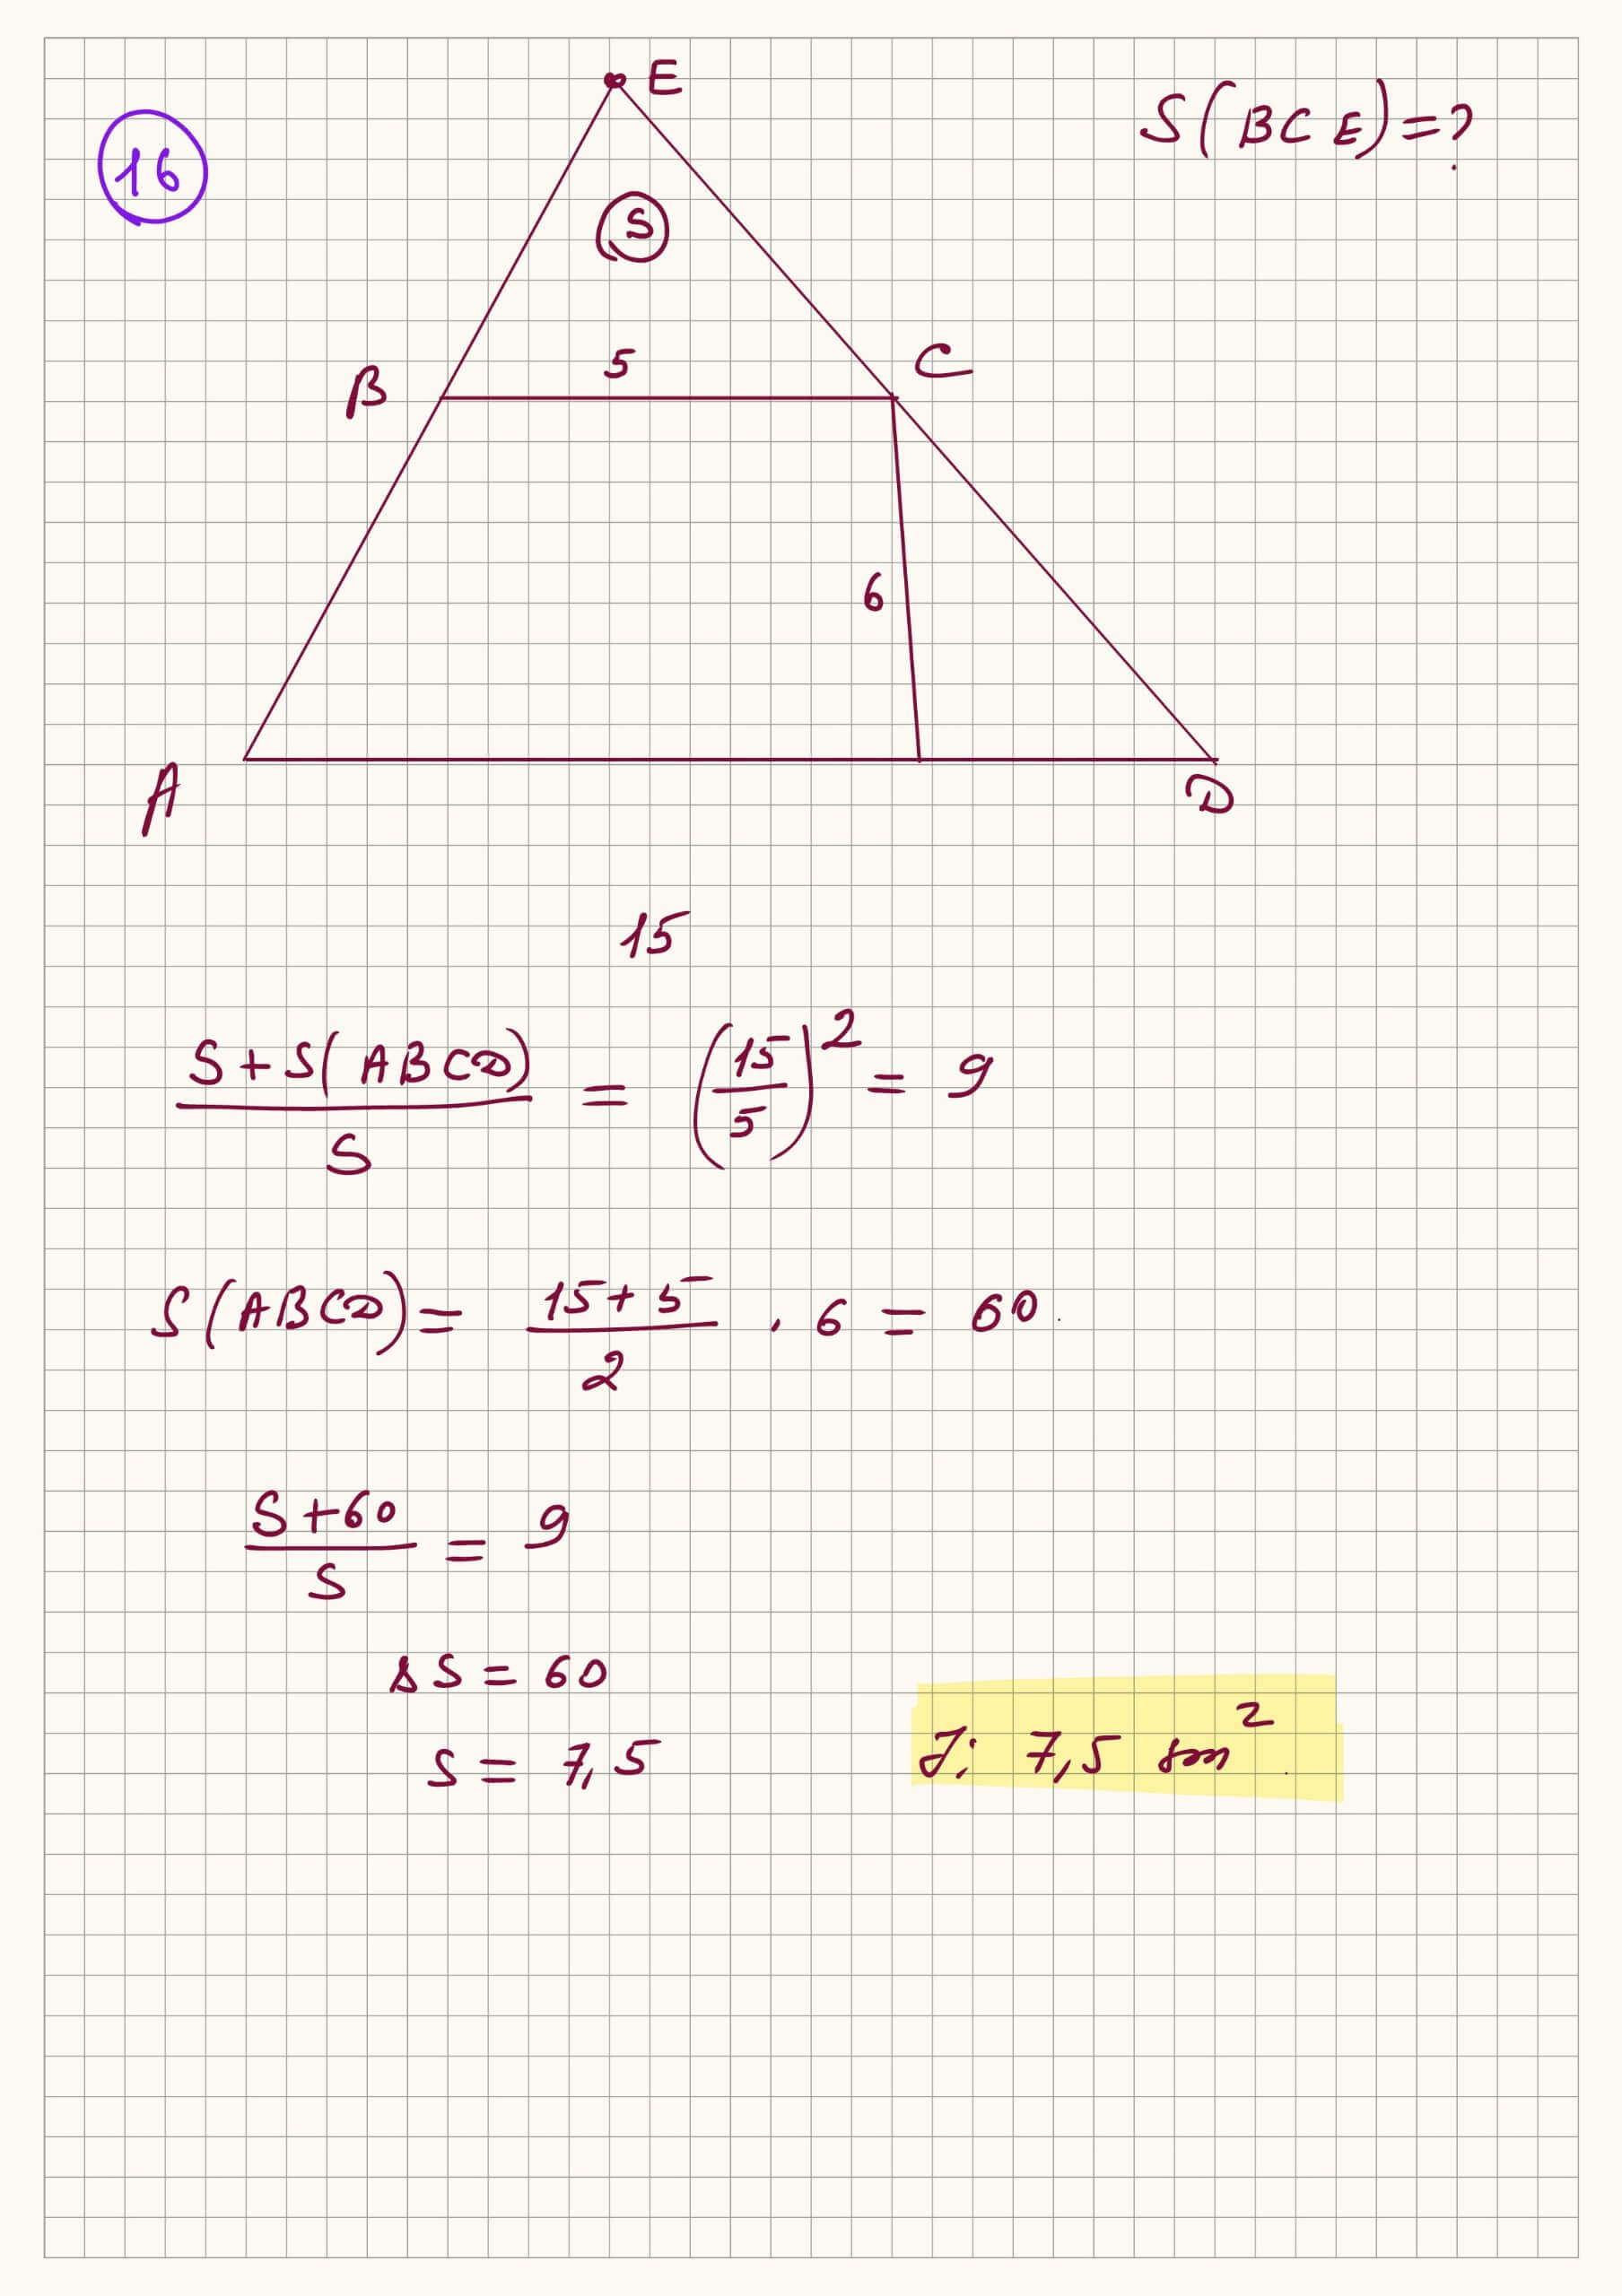 16
E
S(BCE)=?
S
5
B
C
6
A
D
15
S+S(ABCD)/S = (15/5)² = 9
S(ABCD) = 15+5/2 · 6 = 60.
S+60/S = 9
8S = 60
S = 7,5
J: 7,5 sm².